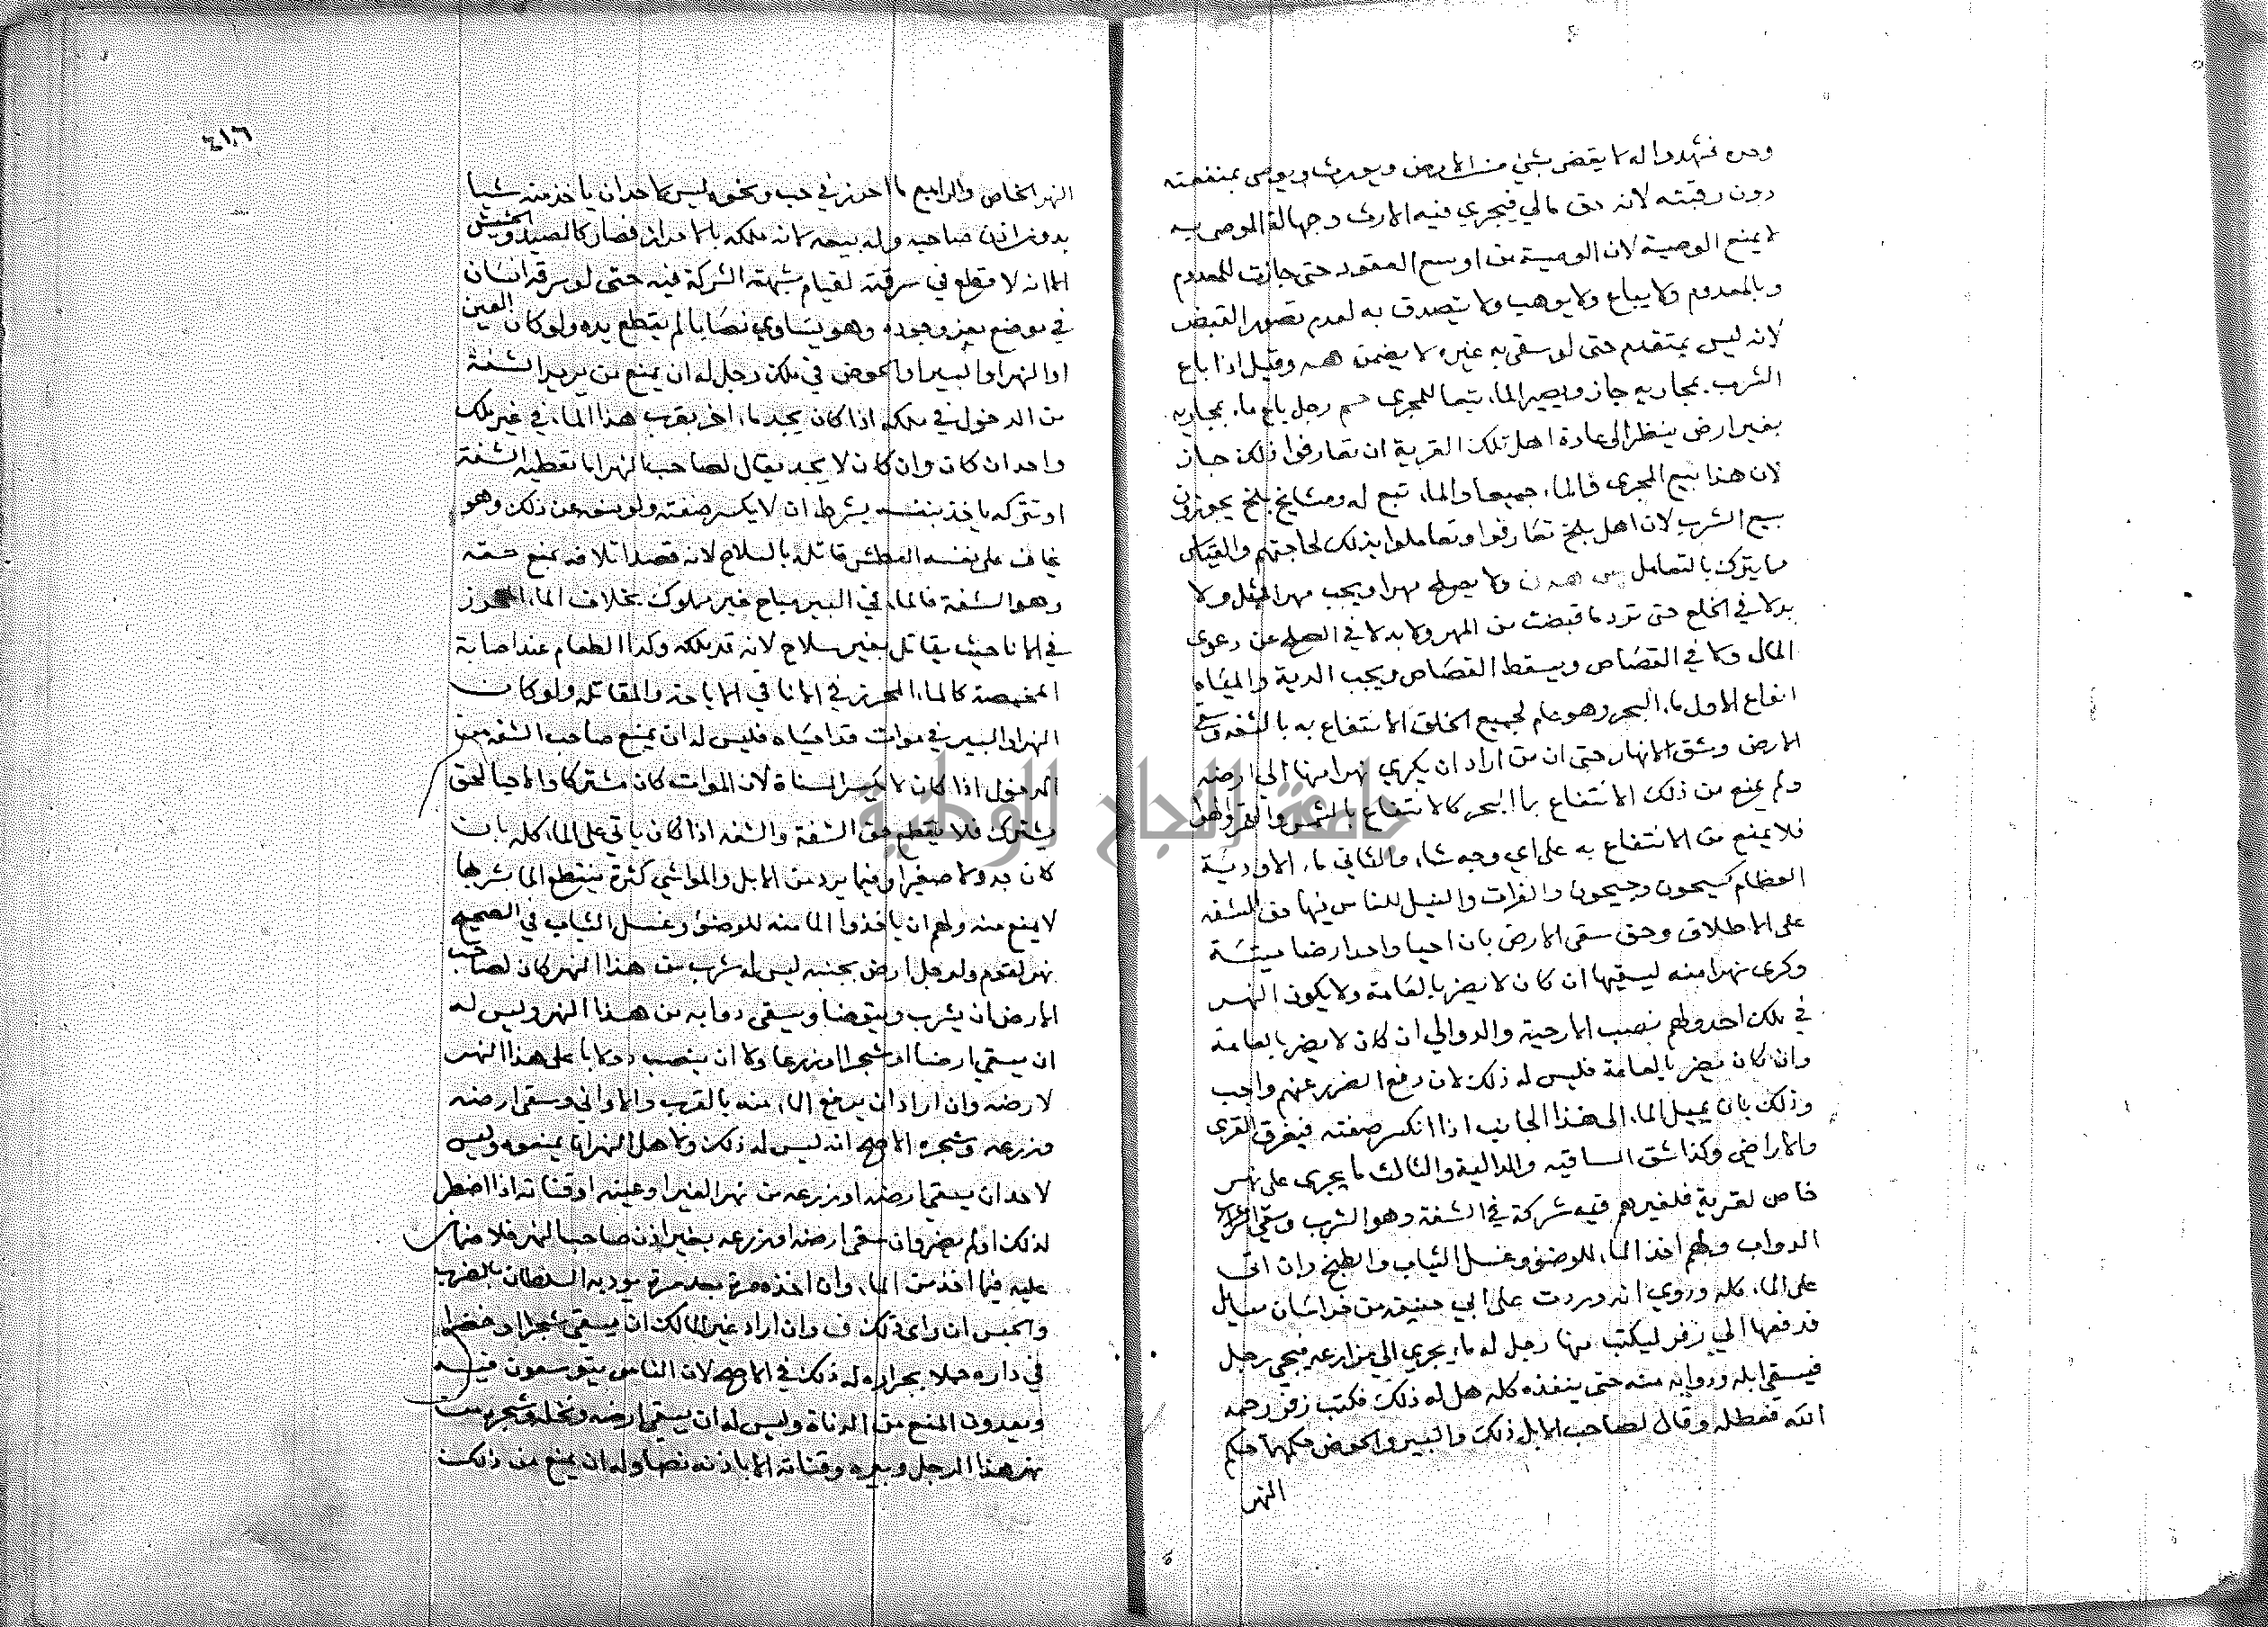 دون رقبته لانه حق مالي فيجري فيه الارث وجهالة الموصى به
لا يمنع الوصية لان الوصية من اوسع العقود حتى جازت للمعدوم
وبالمعدوم ولا يباع ولا يوهب ولا يتصدق به لعدم تصور القبض
لانه ليس بمتقدم حتى لو سقى به غيره لا يضمن وقيل اذا باع
الشرب بمجاريه جاز ويصير الماء تبعا للمجرى رجل باع ماء بمجاريه
بغير ارض ينظر الى عادة اهل تلك القرية ان تعارفوا ذلك جاز
لان هذا بيع المجرى فالماء جميعا والماء تبع له ومشايخ بلخ يجوزون
بيع الشرب لان اهل بلخ تعارفوا وتعاملوا بذلك لحاجتهم والقياس
مما يترك بالتعامل ولا يصلح مهرا ويجب مهر المثل ولا
بدلا في الخلع حتى ترد ما قبضت من المهر ولا بدلا في الصلح عن دعوى
المال ولا في القصاص ويسقط القصاص ويجب الدية والمياه
انواع الاول ماء البحر وهو عام لجميع الخلق الانتفاع به بالشفه وسقي
الارض وشق الانهار حتى ان من اراد ان يكري نهرا منها الي ارضه
ولم يمنع من ذلك الانتفاع بماء البحر كالانتفاع بالشمس والقمر والهوا
فلا يمنع من الانتفاع به على اي وجه شاء والثاني ماء الاودية
العظام كسيحون وجيحون والفرات والنيل للناس فيها حق الشفه
على الاطلاق وحق سقي الارض بان احيا واحد ارضا ميتة
وكرى نهرا منه ليسقيها ان كان لا يضر بالعامة ولا يكون النهر
في ملك احد ولهم نصب الارحية والدوالي ان كان لا يضر بالعامة
وان كان يضر بالعامة فليس له ذلك لان دفع الضرر عنهم واجب
وذلك بان يميل الماء الى هذا الجانب اذا انكسر ضفته فيغرق القرى
والاراضي وكذا شق الساقيه والدالية والثالث ما يجرى على نهر
خاص لقرية فلغيرهم فيه شركة في الشفة وهو الشرب وسقي
الدواب ولهم اخذ الماء للوضوء وغسل الثياب والطبخ وان اتى
على الماء كله وروي انه وردت على ابي حنيفه من خراسان مسايل
فدفعها الي زفر ليكتب منها رجل له ماء يجري الي مزارعه فيجي رجل
فيسقي ابله ودوابه منه حتى ينفذه كله هل له ذلك فكتب زفر رحمه
الله وقال لصاحب الابل ذلك والبير والحوض حكمهما حكم
النهر
٤١٦
النهر الخاص والرابع ما احرز في حب ونحوه ليس لاحد ان ياخذ منه شيا
بدون اذن صاحبه وله بيعه لانه ملكه بالاحراز فصار كالصيد والحشيش
الا انه لا قطع في سرقته لقيام شبهة الشركة فيه حتى لو سرقه انسان
في موضع يعز وجوده وهو يساوي نصابا لم يقطع يده ولو كان العين
او النهر او البير او الحوض في ملك رجل له ان يمنع من يريد الشفة
من الدخول في ملكه اذا كان يجد ماء اخر بقرب هذا الماء في غير ملك
واحد ان كان وان كان لا يجد يقال لصاحب النهر اما تعطيه الشفة
او تتركه ياخذ بنفسه بشرط ان لا يكسر ضفته ولو منعه عن ذلك وهو
يخاف على نفسه العطش قاتله بالسلاح لانه قصد اتلافه بمنع حقه
وهو الشفة فالماء في البير مباح غير مملوك بخلاف الماء المحرز
في الانا حيث يقاتل بغير سلاح لانه قد ملكه وكذا الطعام عند اصابة
المخمصة كالماء المحرز في الانا في الاباحة والمقاتلة ولو كان
النهر او البير في موات قد احياه فليس له ان يمنع صاحب الشفه من
الدخول اذا كان لا يكسر المسناة لان الموات كان مشتركا والاحيا لحق
مشترك فلا يقطع حق الشفة والشفه اذا كان ياتي على الماء كله بان
كان جدولا صغيرا وفيما يرد من الابل والمواشي كثرة ينقطع الما بشربها
لا يمنع منه ولهم ان ياخذوا الما منه للوضوء وغسل الثياب في الصحيح
نهر لقوم ولرجل ارض بجنبه ليس له شرب من هذا النهر كان لصاحب
الارض ان يشرب ويتوضا ويسقي دوابه من هذا النهر وليس له
ان يسقي ارضا او شجرا او زرعا ولا ان ينصب دولابا على هذا النهر
لارضه وان اراد ان يرفع الماء منه بالقرب والاواني وسقى ارضه
وزرعه وشجره الاصح انه ليس له ذلك ولاهل النهر ان يمنعوه وليس
لاحد ان يسقي ارضه او زرعه من نهر الغير او عينه او قناته اذا اضطر
لذلك او لم يضطر وان سقى ارضه او زرعه بغير اذن صاحب النهر فلا ضمان
عليه فيما اخذ من الماء وان اخذه مرة بعد مرة يودبه السلطان بالضرب
والحبس ان راى ذلك وان اراد غير المالك ان يسقي شجرا او خضرا
في داره حملا بجراره له ذلك في الاصح لان الناس يتوسعون فيه
ويعدون المنع من الدناة وليس له ان يسقي ارضه ونخله وشجره من
نهر هذا الرجل وبيره وقناته الا باذنه نصا وله ان يمنع من ذلك
جامعة النجاح الوطنية